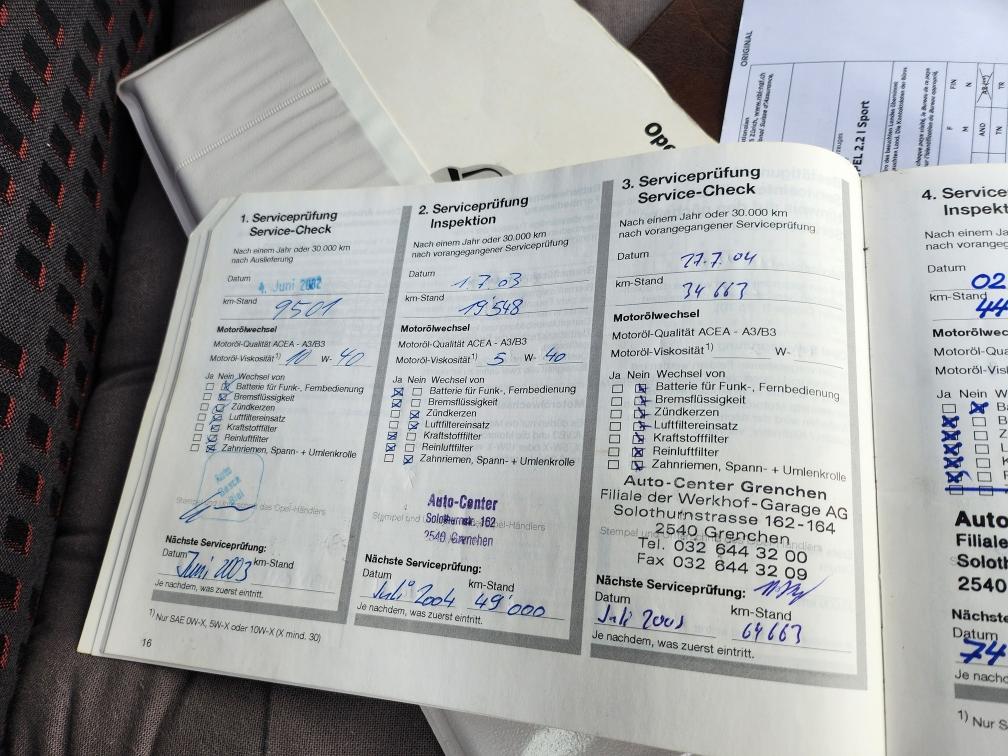 ORIGINAL
Zürich, www.nbi-ngf.ch
PEL 2.2 I Sport
F
FIN
M
N
AND
TN
TR
Ope
1. Serviceprüfung
Service-Check
Nach einem Jahr oder 30.000 km
nach Auslieferung
Datum 4. Juni 2002
km-Stand 9501
Motorölwechsel
Motoröl-Qualität ACEA - A3/B3
Motoröl-Viskosität1) 10 W- 40
Ja Nein Wechsel von
Batterie für Funk-, Fernbedienung
Bremsflüssigkeit
Zündkerzen
Luftfiltereinsatz
Kraftstofffilter
Reinluftfilter
Zahnriemen, Spann- + Umlenkrolle
Auto
Biel
Stempel und des Opel-Händlers
Nächste Serviceprüfung:
Datum Juni 2003 km-Stand
Je nachdem, was zuerst eintritt.
1) Nur SAE 0W-X, 5W-X oder 10W-X (X mind. 30)
16
2. Serviceprüfung
Inspektion
Nach einem Jahr oder 30.000 km
nach vorangegangener Serviceprüfung
Datum 1 7 03
km-Stand 19'548
Motorölwechsel
Motoröl-Qualität ACEA - A3/B3
Motoröl-Viskosität1) 5 W- 40
Ja Nein Wechsel von
Batterie für Funk-, Fernbedienung
Bremsflüssigkeit
Zündkerzen
Luftfiltereinsatz
Kraftstofffilter
Reinluftfilter
Zahnriemen, Spann- + Umlenkrolle
Auto-Center
Solothurnstr. 162
2540 Grenchen
Stempel und Opel-Händlers
Nächste Serviceprüfung:
Datum km-Stand
Juli 2004 49'000
Je nachdem, was zuerst eintritt.
3. Serviceprüfung
Service-Check
Nach einem Jahr oder 30.000 km
nach vorangegangener Serviceprüfung
Datum 27.7.04
km-Stand 34 663
Motorölwechsel
Motoröl-Qualität ACEA - A3/B3
Motoröl-Viskosität1) W-
Ja Nein Wechsel von
Batterie für Funk-, Fernbedienung
Bremsflüssigkeit
Zündkerzen
Luftfiltereinsatz
Kraftstofffilter
Reinluftfilter
Zahnriemen, Spann- + Umlenkrolle
Auto-Center Grenchen
Filiale der Werkhof-Garage AG
Solothurnstrasse 162-164
2540 Grenchen
Tel. 032 644 32 00
Fax 032 644 32 09
Nächste Serviceprüfung:
Datum km-Stand
Juli 2005 64663
Je nachdem, was zuerst eintritt.
4. Service
Inspekt
Nach einem Ja
nach vorangeg
Datum 02
km-Stand 44
Motorölwec
Motoröl-Qua
Motoröl-Vis
Ja Nein W
Auto
Filiale
Soloth
2540
Nächste
Datum
74
Je nachd
1) Nur S